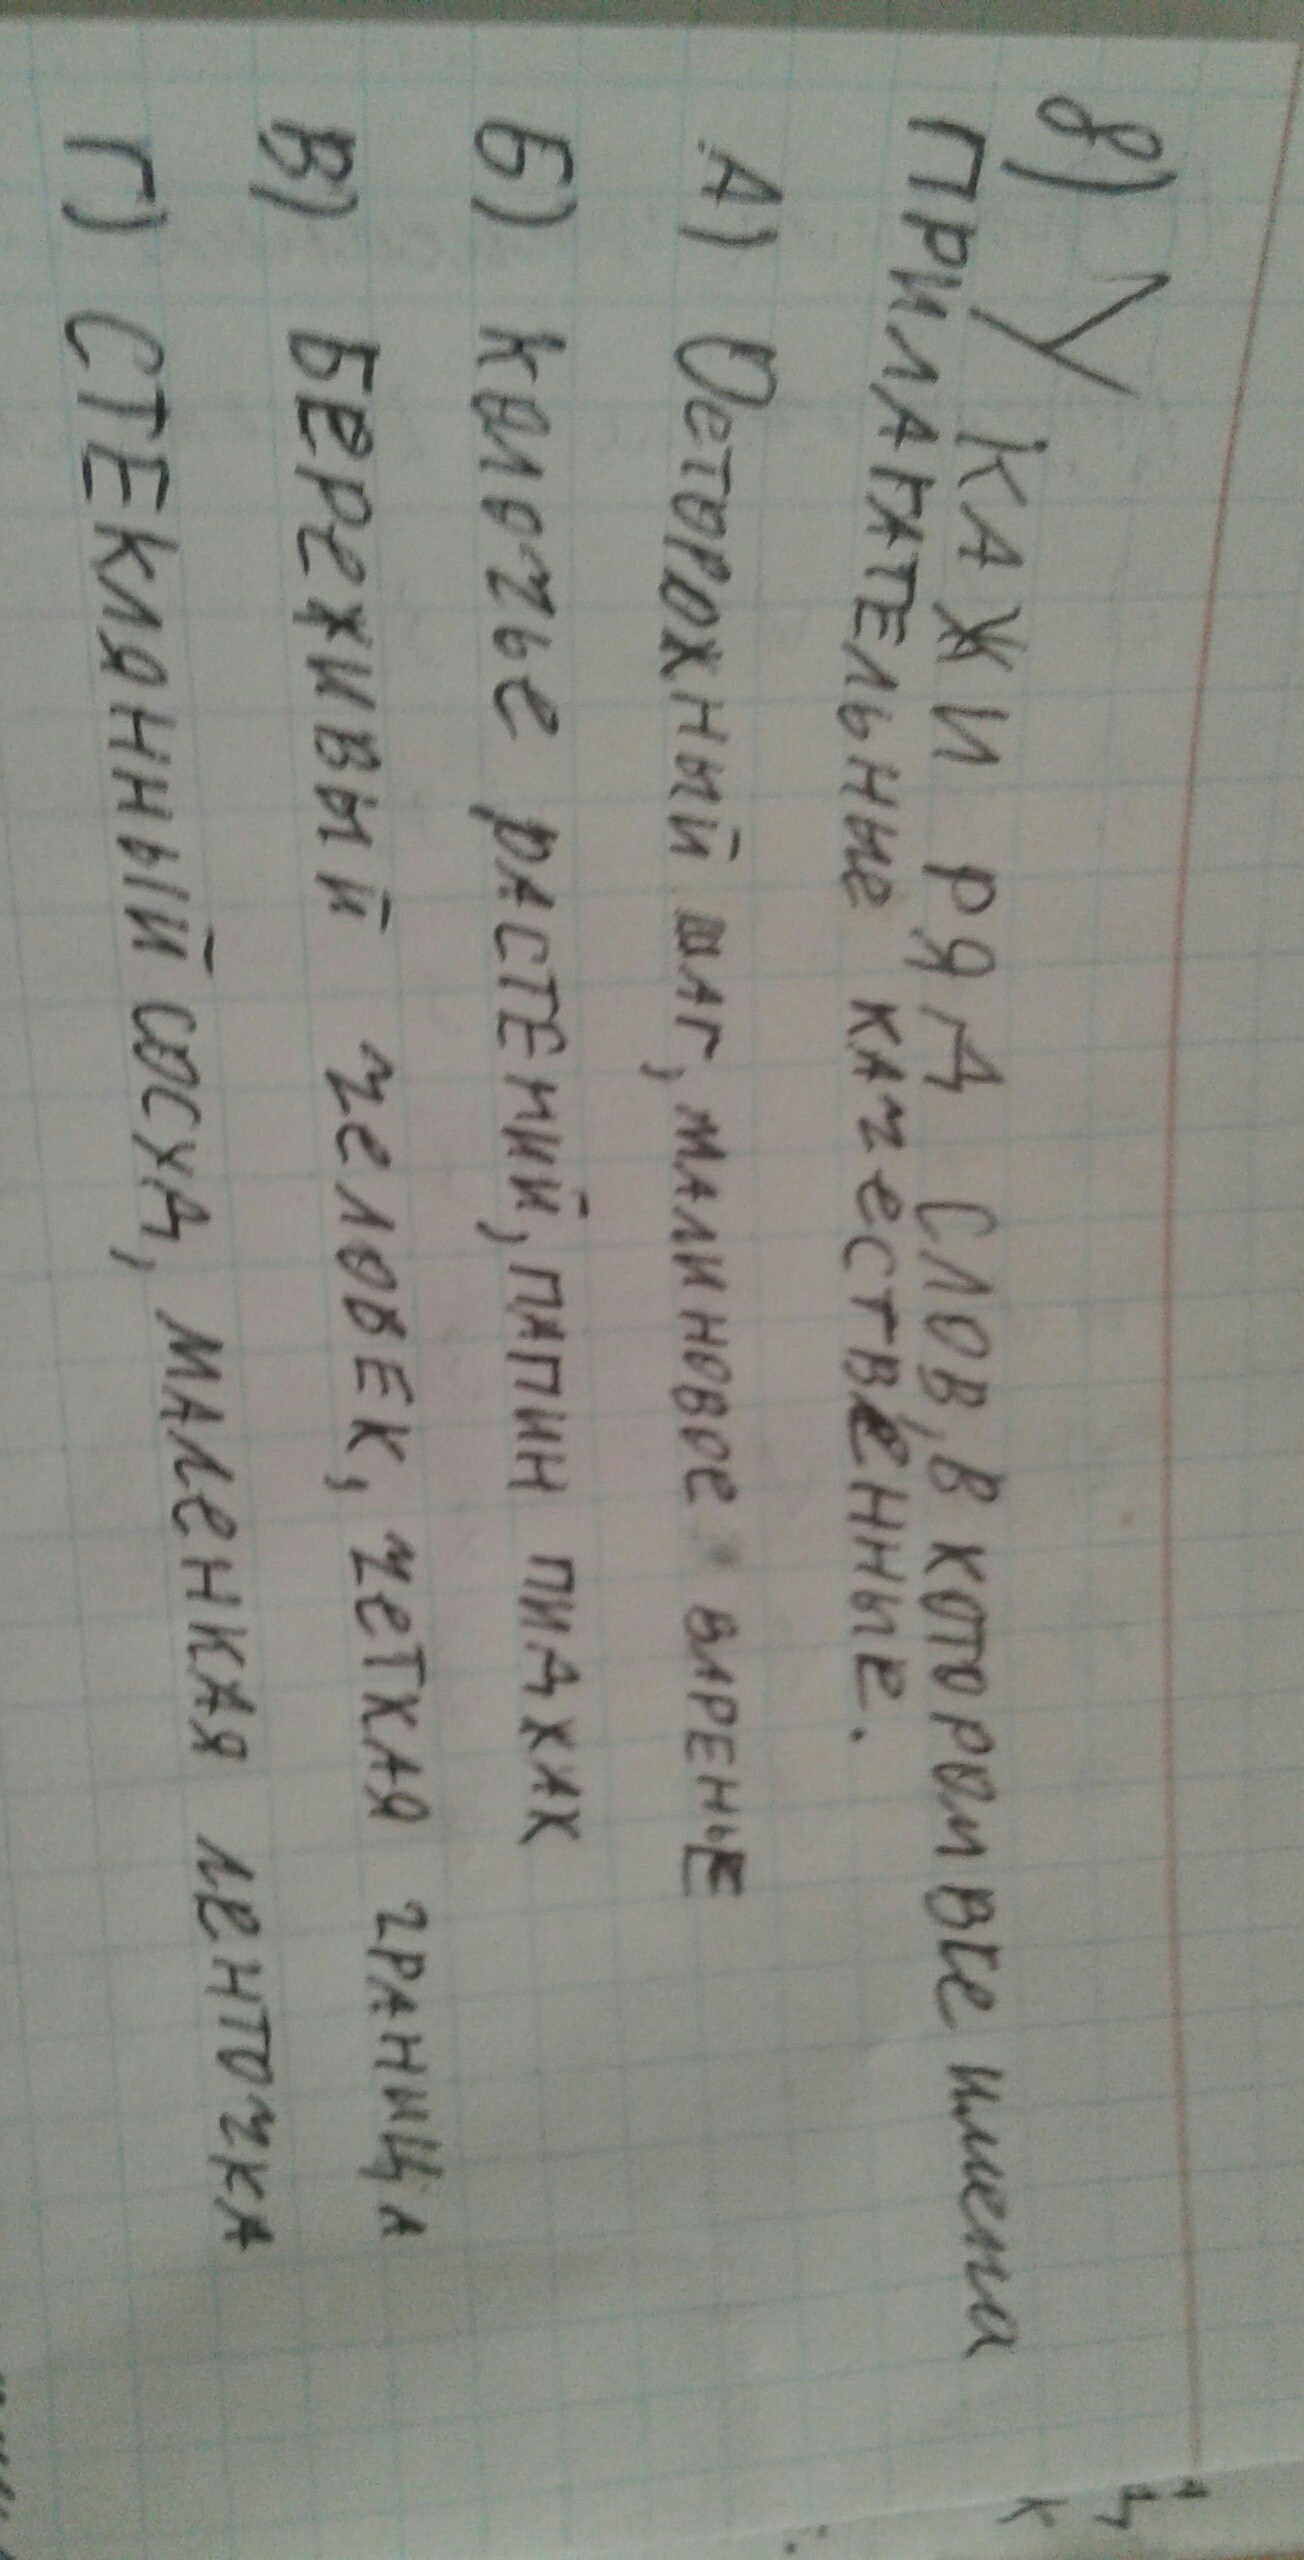 8) УКАЖИ РЯД СЛОВ, В КОТОРОМ ВСЕ имена
ПРИЛАГАТЕЛЬНЫЕ КАЧЕСТВЕННЫЕ.
А) ОСТОРОЖНЫЙ ШАГ, МАЛИНОВОЕ ВАРЕНЬЕ
Б) КОЛЮЧЬЕ РАСТЕНИЙ, ПАПИН ПИДЖАК
В) БЕРЕЖИВЫЙ ЧЕЛОВЕК, ЧЕТКАЯ ГРАНИЦА
Г) СТЕКЛЯННЫЙ СОСУД, МАЛЕНКАЯ ЛЕНТОЧКА